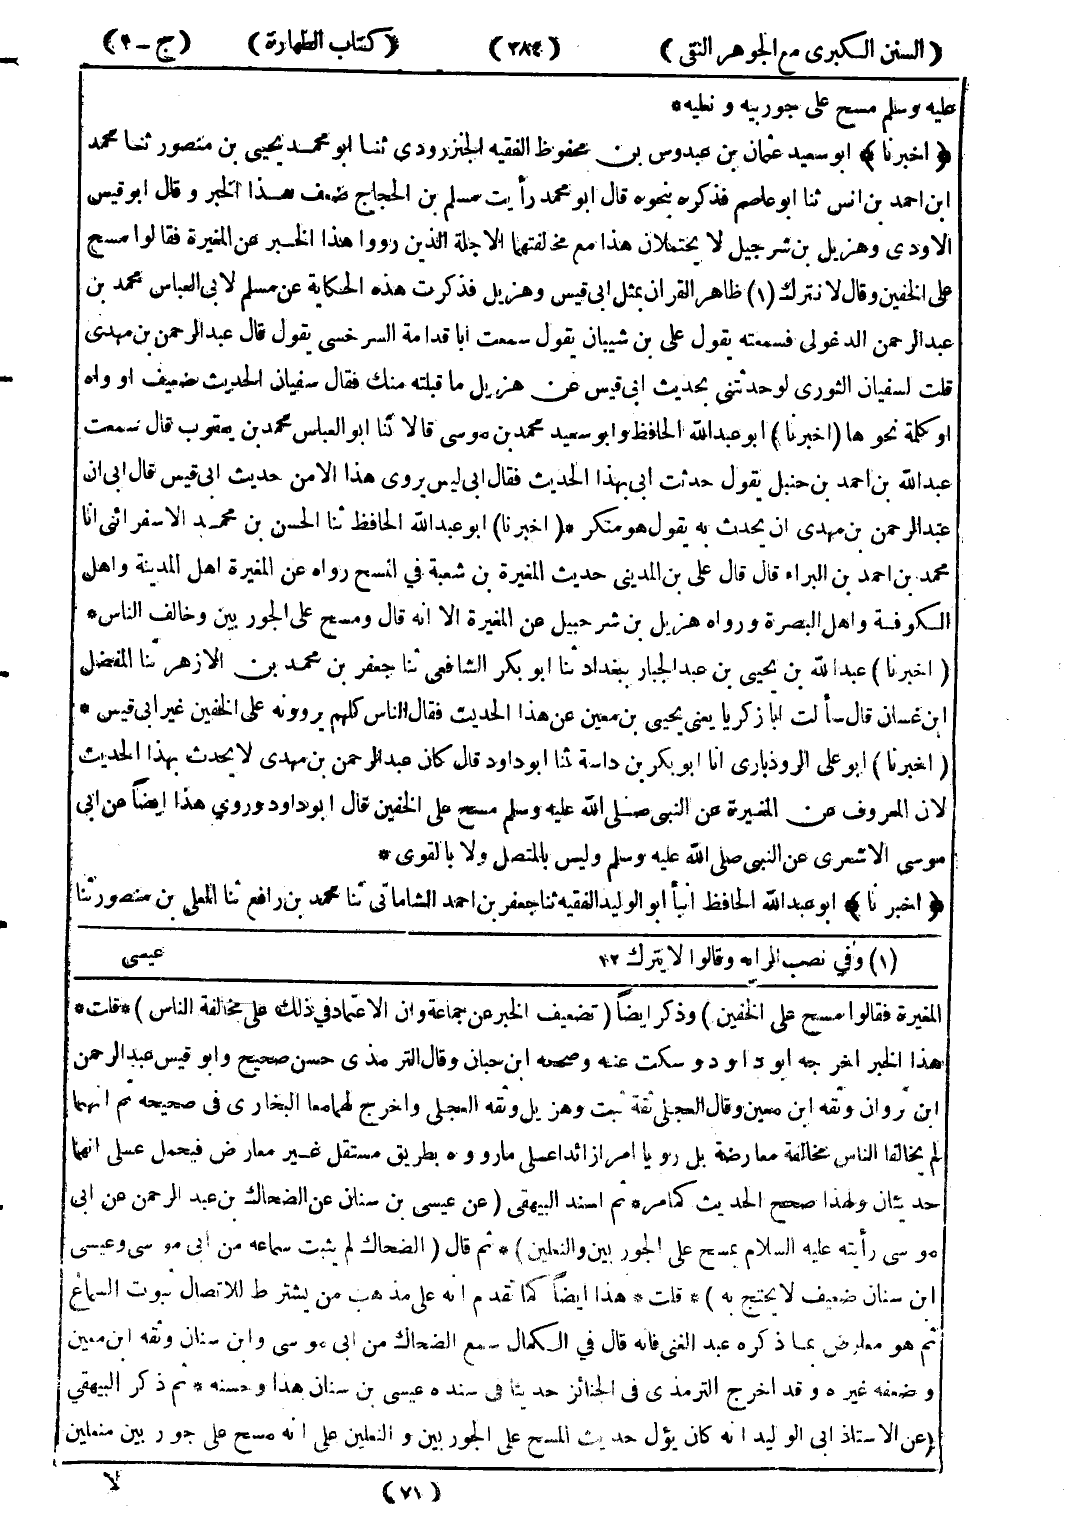 (السنن الكبرى مع الجوهر النقى) (٢٨٤) (كتاب الطهارة) (ج - ٢)
عليه وسلم مسح على جوربيه و نعليه*
﴿ اخبرنا ﴾ ابو سعيد عثمان بن عبدوس بن محفوظ الفقيه الجنزرودى ثنا ابو محمد يحيى بن منصور ثنا محمد
ابن احمد بن انس ثنا ابو عاصم فذكره بنحوه قال ابو محمد رأيت مسلم بن الحجاج ضعف هذا الخبر و قال ابو قيس
الاودى وهزيل بن شرجيل لا يحتملان هذا مع مخالفتهما الاجلة الذين رووا هذا الخبر عن المغيرة فقالوا مسح
على الخفين وقال لا نترك (١) ظاهر القرآن بمثل ابى قيس وهزيل فذكرت هذه الحكاية عن مسلم لابى العباس محمد بن
عبد الرحمن الدغولى فسمعته يقول على بن شيبان يقول سمعت ابا قدامة السرخسى يقول قال عبد الرحمن بن مهدى
قلت لسفيان الثورى لو حدثتنى بحديث ابى قيس عن هزيل ما قبلته منك فقال سفيان الحديث ضعيف او واه
او كلمة نحو ها (اخبرنا) ابو عبد الله الحافظ و ابو سعيد محمد بن موسى قالا ثنا ابو العباس محمد بن يعقوب قال سمعت
عبد الله بن احمد بن حنبل يقول حدثت ابى بهذا الحديث فقال ابى ليس يروى هذا الا من حديث ابى قيس قال ابى ان
عبد الرحمن بن مهدى ان يحدث به يقول هو منكر *( اخبرنا) ابو عبد الله الحافظ ثنا الحسن بن محمد الاسفرائنى انا
محمد بن احمد بن البراء قال قال على بن المدينى حديث المغيرة بن شعبة في المسح رواه عن المغيرة اهل المدينة و اهل
الكوفة واهل البصرة و رواه هزيل بن شرحبيل عن المغيرة الا انه قال ومسح على الجوربين وخالف الناس*
( اخبرنا ) عبد الله بن يحيى بن عبد الجبار ببغداد ثنا ابو بكر الشافعى ثنا جعفر بن محمد بن الازهر ثنا المفضل
ابن غسان قال سألت ابا زكريا يعنى يحيى بن معين عن هذا الحديث فقال الناس كلهم يروونه على الخفين غير ابى قيس *
( اخبرنا ) ابو على الروذبارى انا ابو بكر بن داسة ثنا ابو داود قال كان عبد الرحمن بن مهدى لا يحدث بهذا الحديث
لان المعروف عن المغيرة عن النبى صلى الله عليه وسلم مسح على الخفين قال ابو داود وروي هذا ايضاً عن ابى
موسى الاشعرى عن النبى صلى الله عليه وسلم وليس بالمتصل ولا بالقوى *
﴿ اخبر نا ﴾ ابو عبد الله الحافظ انبأ ابو الوليد الفقيه ثنا جعفر بن احمد الشاماتى ثنا محمد بن رافع ثنا المعلى بن منصور ثنا
(١) وفي نصب الرايه وقالوا لا يترك ١٢ عيسى
المغيرة فقالوا مسح على الخفين ) وذكر ايضاً ( تضعيف الخبر عن جماعة وان الاعتماد في ذلك على مخالفة الناس )*قلت*
هذا الخبر اخر جه ابو د اود و سكت عنه وصححه ابن حبان وقال التر مذى حسن صحيح وابو قيس عبد الرحمن
ابن ثروان وثقه ابن معين وقال العجلى ثقة ثبت وهزيل وثقه العجلى واخرج لهما معا البخارى فى صحيحه ثم انهما
لم يخالفا الناس مخالفة معارضة بل رو يا امر از ائدا على مارووه بطريق مستقل غير معارض فيحمل على انهما
حد يثان ولهذا صحح الحديث كما مر* ثم اسند البيهقى ( عن عيسى بن سنان عن الضحاك بن عبد الرحمن عن ابى
مو سى رأيته عليه السلام يمسح على الجوربين والنعلين )* ثم قال ( الضحاك لم يثبت سماعه من ابى مو سى وعيسى
ابن سنان ضعيف لا يحتج به )* قلت* هذا ايضاً كما تقدم انه على مذهب من يشترط للاتصال ثبوت السماع
ثم هو معارض بما ذكره عبد الغنى فانه قال في الكمال سمع الضحاك من ابى مو سى و ابن سنان وثقه ابن معين
و ضعفه غير ه و قد اخرج الترمذى فى الجنائز حديثا فى سنده عيسى بن سنان هذا و حسنه * ثم ذكر البيهقى
(عن الاستاذ ابى الوليد انه كان يؤل حديث المسح على الجوربين و النعلين على انه مسح على جوربين منعلين
(٧١) لا